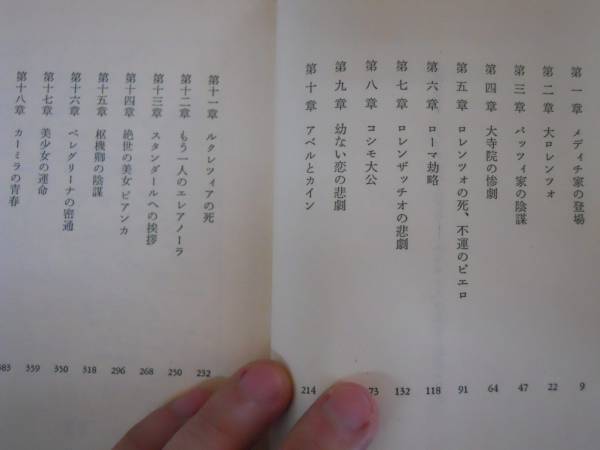 第一章 メディチ家の登場 9
第二章 大ロレンツォ 22
第三章 パッツィ家の陰謀 47
第四章 大寺院の惨劇 64
第五章 ロレンツォの死、不運のピエロ 91
第六章 ローマ劫略 118
第七章 ロレンザッチオの悲劇 132
第八章 コシモ大公 73
第九章 幼ない恋の悲劇
第十章 アベルとカイン 214
第十一章 ルクレツィアの死 232
第十二章 もう一人のエレアノーラ 250
第十三章 スタンダールへの挨拶 268
第十四章 絶世の美女ビアンカ 296
第十五章 枢機卿の陰謀 318
第十六章 ペレグリーナの密通 350
第十七章 美少女の運命 359
第十八章 カーミラの青春 383